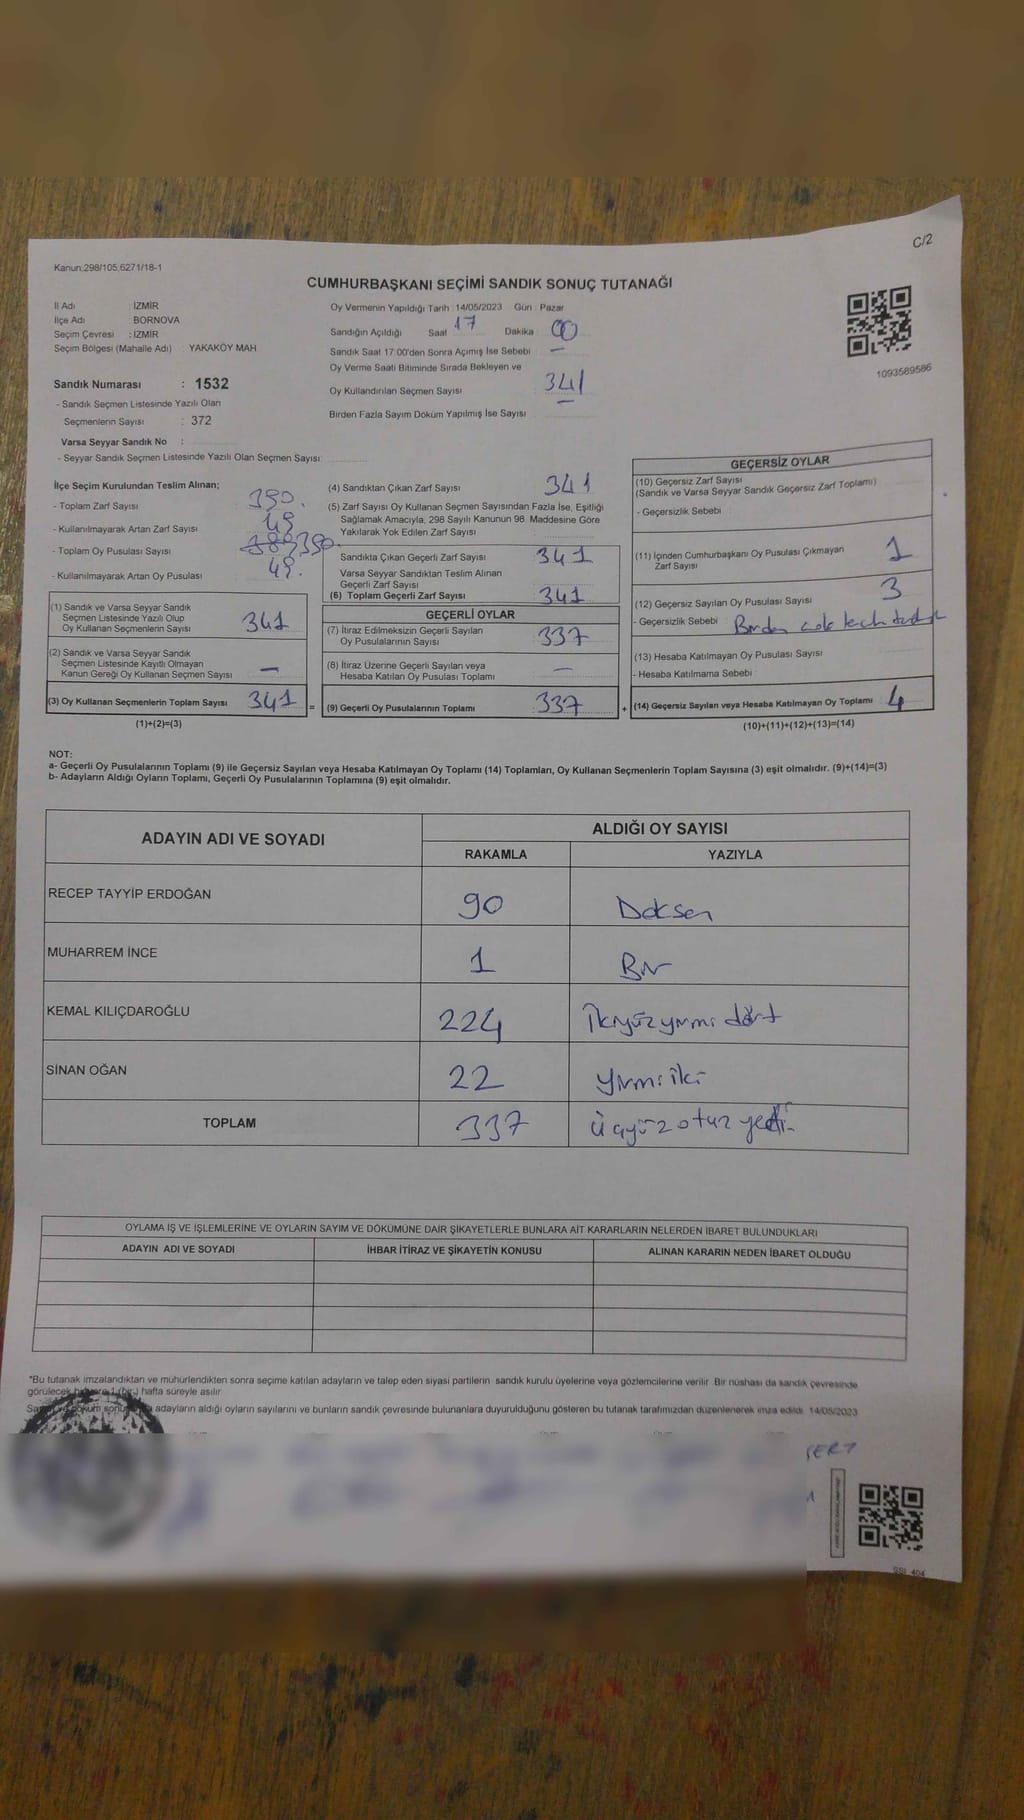 C/2
Kanun:298/105,6271/18-1
CUMHURBAŞKANI SEÇİMİ SANDIK SONUÇ TUTANAĞI
İl Adı İZMİR
İlçe Adı BORNOVA
Seçim Çevresi : İZMİR
Seçim Bölgesi (Mahalle Adı) : YAKAKÖY MAH
Sandık Numarası : 1532
- Sandık Seçmen Listesinde Yazılı Olan
Seçmenlerin Sayısı : 372
Varsa Seyyar Sandık No :
- Seyyar Sandık Seçmen Listesinde Yazılı Olan Seçmen Sayısı:
Oy Vermenin Yapıldığı Tarih 14/05/2023 Gün : Pazar
Sandığın Açıldığı Saat 17 Dakika 00
Sandık Saat 17:00'den Sonra Açımış İse Sebebi –
Oy Verme Saati Bitiminde Sırada Bekleyen ve
Oy Kullandırılan Seçmen Sayısı 341
Birden Fazla Sayım Döküm Yapılmış İse Sayısı –
1093589586
İlçe Seçim Kurulundan Teslim Alınan;
- Toplam Zarf Sayısı 390.
- Kullanılmayarak Artan Zarf Sayısı 49
- Toplam Oy Pusulası Sayısı 390.
- Kullanılmayarak Artan Oy Pusulası 49.
(1) Sandık ve Varsa Seyyar Sandık
Seçmen Listesinde Yazılı Olup
Oy Kullanan Seçmenlerin Sayısı 341
(2) Sandık ve Varsa Seyyar Sandık
Seçmen Listesinde Kayıtlı Olmayan
Kanun Gereği Oy Kullanan Seçmen Sayısı –
(3) Oy Kullanan Seçmenlerin Toplam Sayısı 341 =
(1)+(2)=(3)
(4) Sandıktan Çıkan Zarf Sayısı 341
(5) Zarf Sayısı Oy Kullanan Seçmen Sayısından Fazla İse, Eşitliği
Sağlamak Amacıyla, 298 Sayılı Kanunun 98. Maddesine Göre
Yakılarak Yok Edilen Zarf Sayısı
Sandıkta Çıkan Geçerli Zarf Sayısı 341
Varsa Seyyar Sandıktan Teslim Alınan
Geçerli Zarf Sayısı
(6) Toplam Geçerli Zarf Sayısı 341
GEÇERLİ OYLAR
(7) İtiraz Edilmeksizin Geçerli Sayılan
Oy Pusulalarının Sayısı 337
(8) İtiraz Üzerine Geçerli Sayılan veya
Hesaba Katılan Oy Pusulası Toplamı –
(9) Geçerli Oy Pusulalarının Toplamı 337 +
GEÇERSİZ OYLAR
(10) Geçersiz Zarf Sayısı
(Sandık ve Varsa Seyyar Sandık Geçersiz Zarf Toplamı)
- Geçersizlik Sebebi
(11) İçinden Cumhurbaşkanı Oy Pusulası Çıkmayan
Zarf Sayısı 1
(12) Geçersiz Sayılan Oy Pusulası Sayısı 3
- Geçersizlik Sebebi : Birden çok
(13) Hesaba Katılmayan Oy Pusulası Sayısı
- Hesaba Katılmama Sebebi
(14) Geçersiz Sayılan veya Hesaba Katılmayan Oy Toplamı 4
(10)+(11)+(12)+(13)=(14)
NOT:
a- Geçerli Oy Pusulalarının Toplamı (9) ile Geçersiz Sayılan veya Hesaba Katılmayan Oy Toplamı (14) Toplamları, Oy Kullanan Seçmenlerin Toplam Sayısına (3) eşit olmalıdır. (9)+(14)=(3)
b- Adayların Aldığı Oyların Toplamı, Geçerli Oy Pusulalarının Toplamına (9) eşit olmalıdır.
ADAYIN ADI VE SOYADI ALDIĞI OY SAYISI
RAKAMLA YAZIYLA
RECEP TAYYİP ERDOĞAN 90 Doksan
MUHARREM İNCE 1 Bir
KEMAL KILIÇDAROĞLU 224 İkiyüzyirmi dört
SİNAN OĞAN 22 yirmi iki
TOPLAM 337 üçyüz otuz yedi
OYLAMA İŞ VE İŞLEMLERİNE VE OYLARIN SAYIM VE DÖKÜMÜNE DAİR ŞİKAYETLERLE BUNLARA AİT KARARLARIN NELERDEN İBARET BULUNDUKLARI
ADAYIN ADI VE SOYADI İHBAR İTİRAZ VE ŞİKAYETİN KONUSU ALINAN KARARIN NEDEN İBARET OLDUĞU
*Bu tutanak imzalandıktan ve mühürlendikten sonra seçime katılan adayların ve talep eden siyasi partilerin sandık kurulu üyelerine veya gözlemcilerine verilir. Bir nüshası da sandık çevresinde
görülecek bir yere 1 (bir) hafta süreyle asılır
adayların aldığı oyların sayılarını ve bunların sandık çevresinde bulunanlara duyurulduğunu gösteren bu tutanak tarafımızdan düzenlenerek imza edildi. 14/05/2023